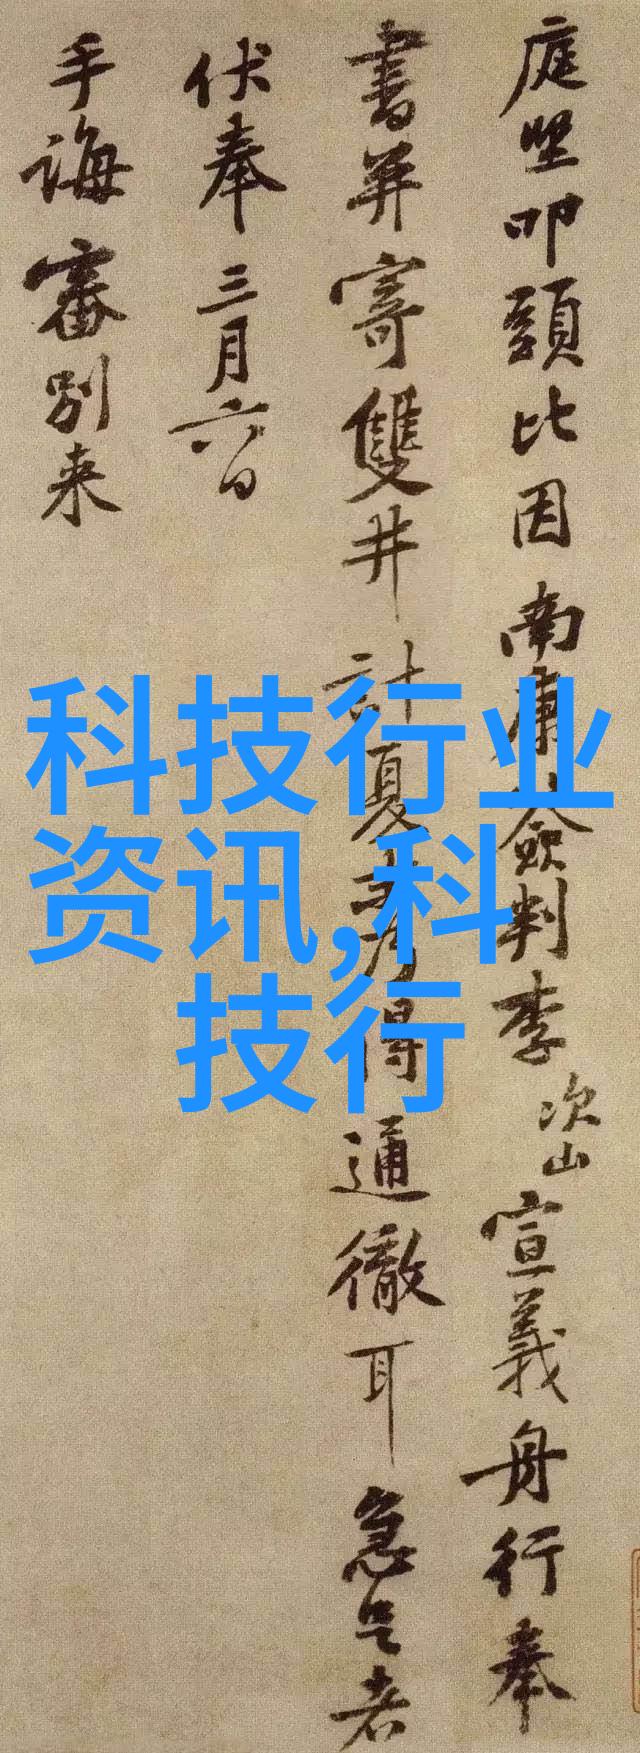 庭堅叩頭比因南康僉判李次山宣義舟行奉
書并寄雙井計夏得通徹耳急足者
伏奉三月六日
手誨審別来
科技行业
资讯,科
技行